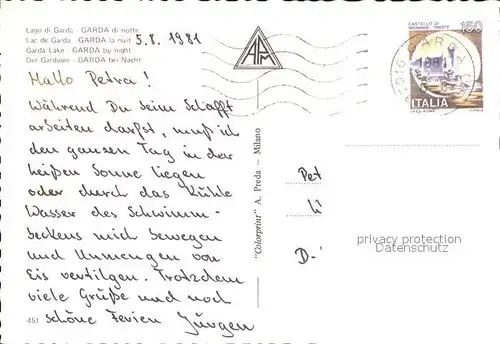 Lago di Garda, GARDA di notte
Lac de Garda - GARDA la nuit
Garda Lake - GARDA by night
Der Gardasee - GARDA bei Nacht
5.8.1981
Hallo Petra!
Während Du
arbeiten darfst, muß ich
den ganzen Tag in der
heißen Sonne liegen
oder durch das kühle
Wasser des Schwimm-
beckens mich bewegen
und Unmengen von
Eis vertilgen. Trotzdem
viele Grüße und noch
schöne Ferien Jürgen
451
"Colorprint" A. Preda — Milano
CASTELLO DI
MIRAMARE - TRIESTE
150
ITALIA
1981
Pet
Li
D-
privacy protection
Datenschutz